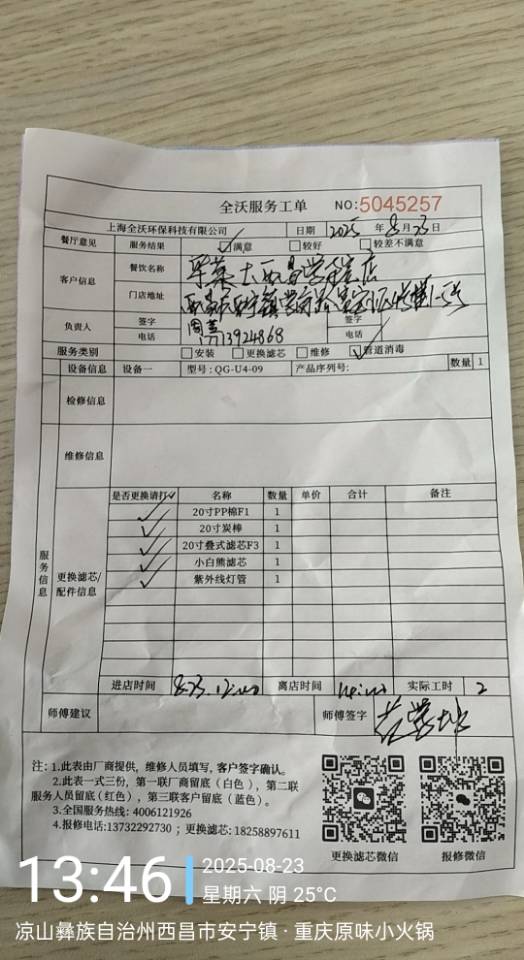 全沃服务工单 NO:5045257
上海全沃环保科技有限公司 日期 2025 年 8 月 23 日
餐厅意见 服务结果 ☑满意 □较好 □较差不满意
客户信息 餐饮名称
门店地址
负责人 签字 签字
电话 电话
服务类别 □安装 □更换滤芯 □维修 ☑管道消毒
设备信息 设备一 型号:QG-U4-09 产品序列号: 数量 1
检修信息
维修信息
服务信息
更换滤芯/配件信息
是否更换请打✓ 名称 数量 单价 合计 备注
✓ 20寸PP棉F1 1
✓ 20寸炭棒 1
✓ 20寸叠式滤芯F3 1
✓ 小白熊滤芯 1
✓ 紫外线灯管 1
进店时间 8.23. 12:00 离店时间 实际工时 2
师傅建议 师傅签字
注: 1.此表由厂商提供，维修人员填写，客户签字确认。
2.此表一式三份，第一联厂商留底（白色），第二联
服务人员留底(红色)，第三联客户留底（蓝色）。
3.全国服务热线: 4006121926
4.报修电话:13732292730；更换滤芯: 18258897611
更换滤芯微信 报修微信
13:46
2025-08-23
星期六 阴 25°C
凉山彝族自治州西昌市安宁镇·重庆原味小火锅